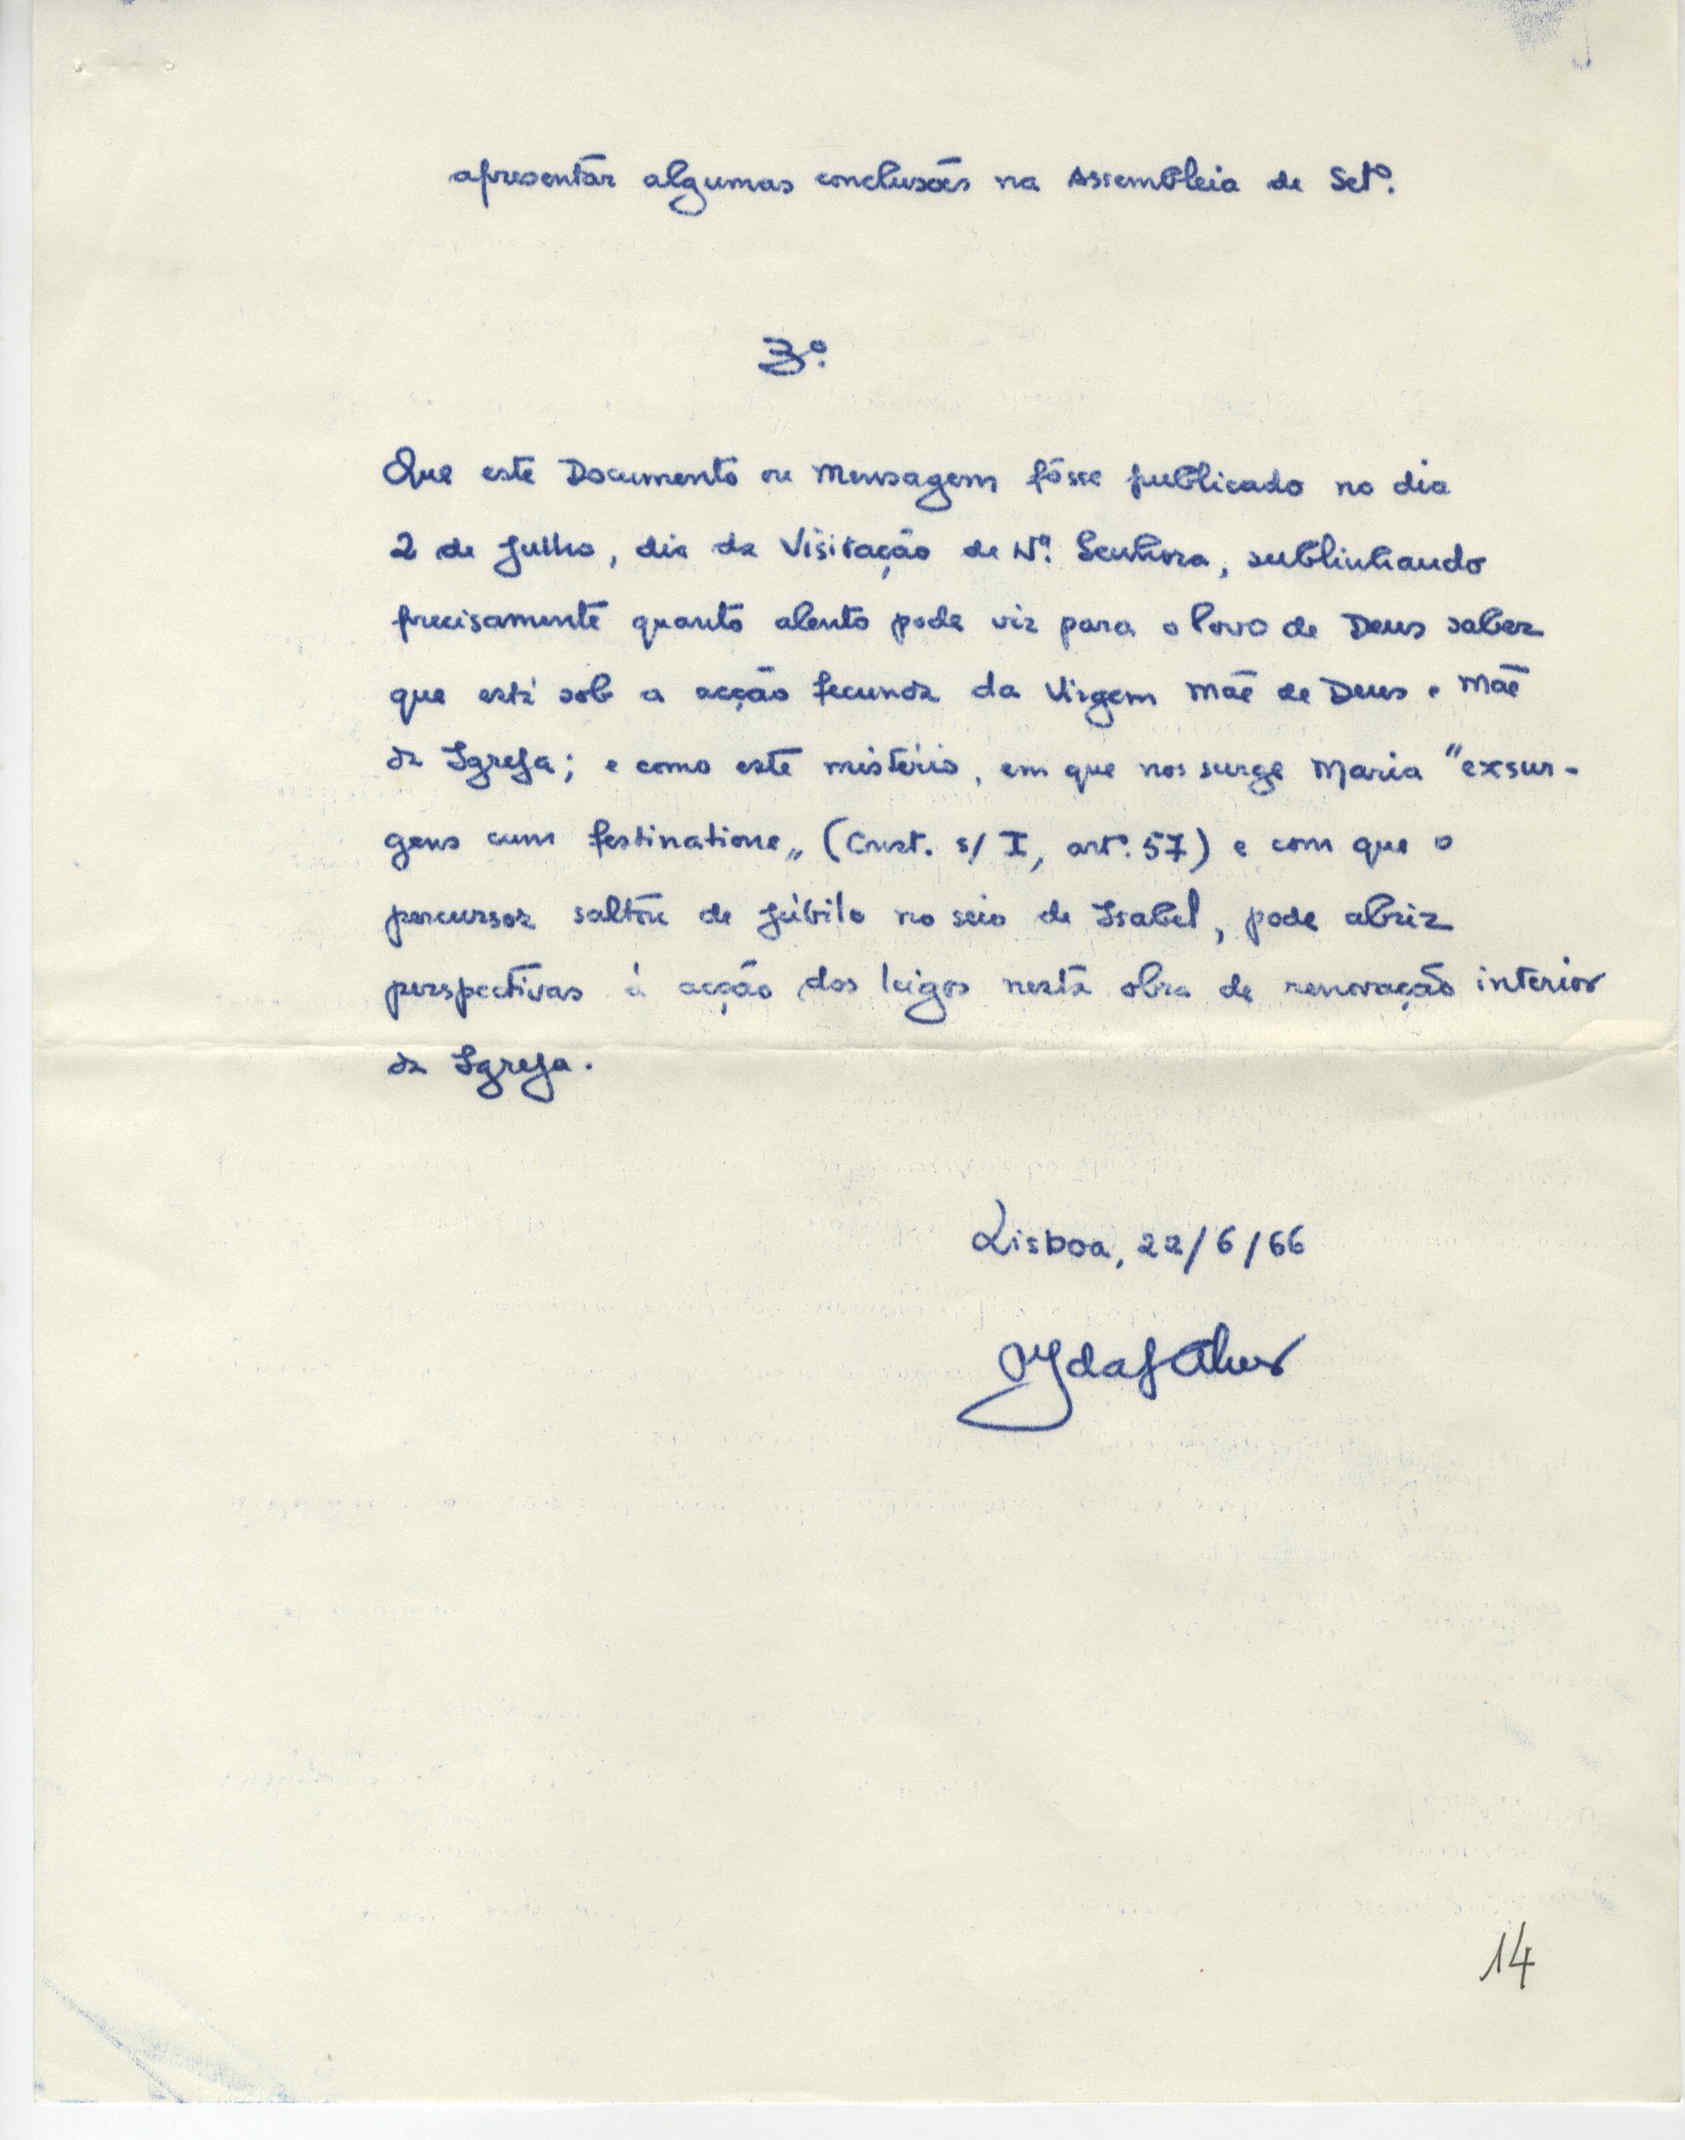 apresentar algumas conclusões na Assembleia de Setº.
3º.
Que este Documento ou Mensagem fôsse publicado no dia
2 de Julho, dia da Visitação de Nª. Senhora, sublinhando
precisamente quanto alento pode vir para o Povo de Deus saber
que está sob a acção fecunda da Virgem Mãe de Deus e Mãe
da Igreja; e como este mistério, em que nos surge Maria "exsur-
gens cum festinatione" (Const. s/ I, artº. 57) e com que o
percursor saltou de júbilo no seio de Isabel, pode abrir
perspectivas à acção dos leigos nesta obra de renovação interior
da Igreja.
Lisboa, 22/6/66
14